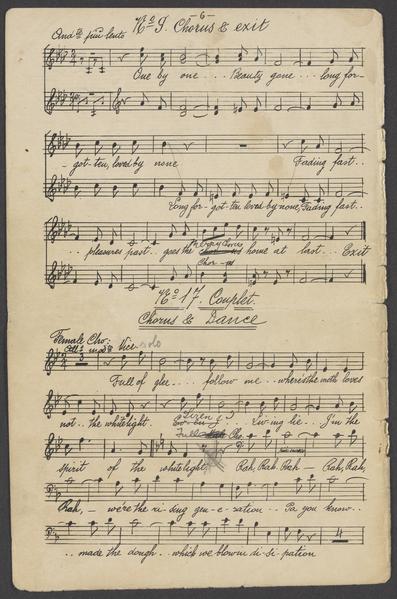 - 6 -
No 9. Chorus & exit
And.te più lento
One by one . . . Beauty gone . . . long for-
- got - ten, loved by none Fading fast . .
Long for - got - ten loved by none, Fading fast . .
. . pleasures past . . goes the home at last . . . Exit
Chor - us
No 17. Couplet.
Chorus & Dance
Female Cho:
All.o mod.to Vice solo
Full of glee . . . . follow me . . where's the moth loves
not . . the white light. . . Ev'ning lie . . I'm the
Siren
Full Cho.
spirit of the white light. Rah, Rah, Rah — Rah, Rah,
Rah, — we're the ri - sing gen - e - ration . . Pa you know . .
. . made the dough . . which we blow in di - si - pation
4